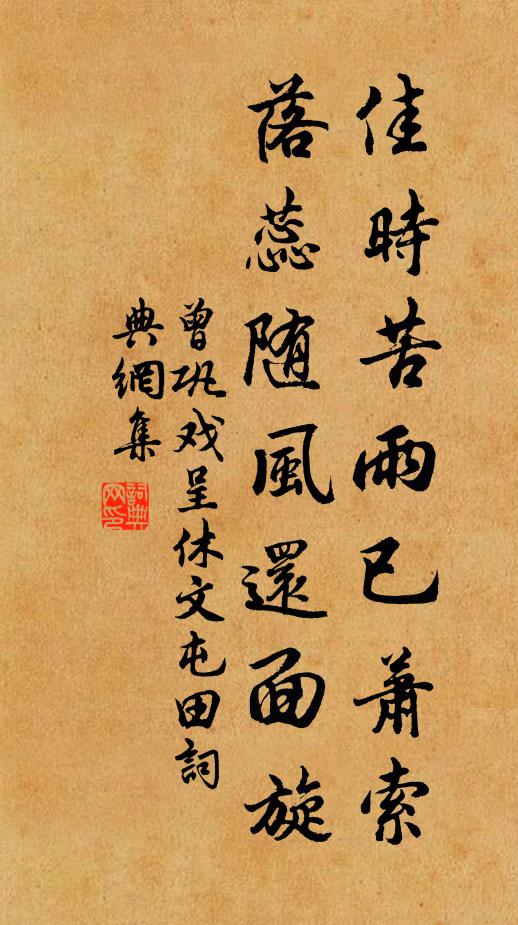 佳時苦雨已蕭索
落蕊随風還面旋
曾巩戏呈休文屯田詞
典網集
詞典
网印